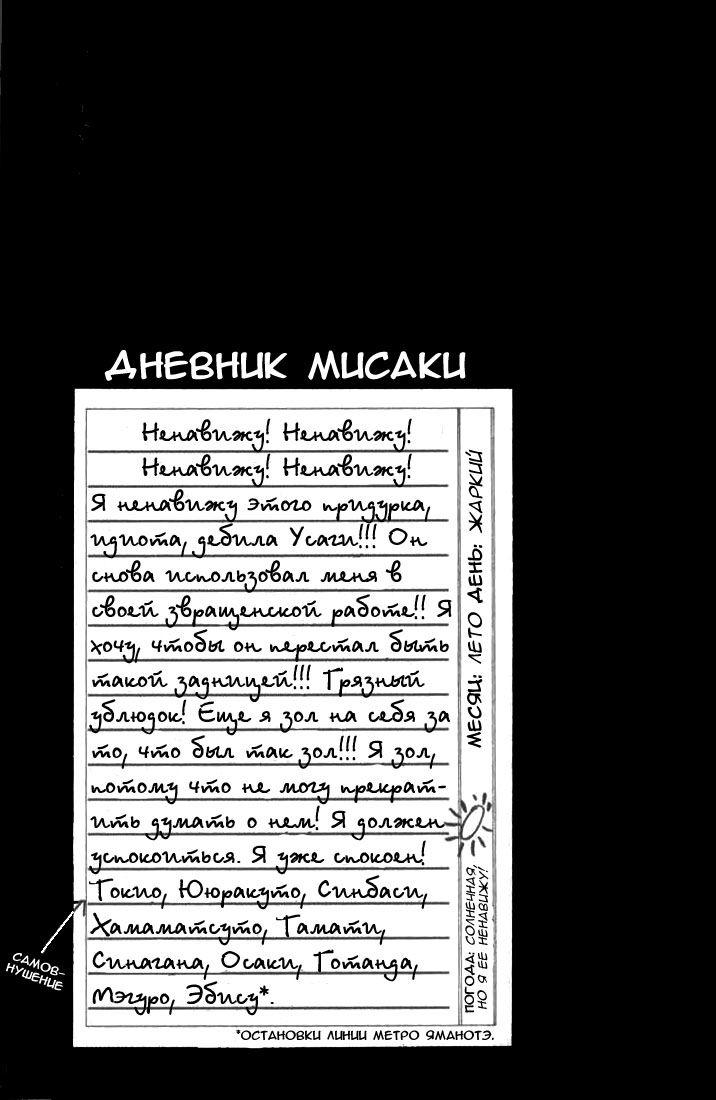 ДНЕВНИК МИСАКИ
Ненавижу! Ненавижу!
Ненавижу! Ненавижу!
Я ненавижу этого придурка,
идиота, дебила Усаги!!! Он
снова использовал меня в
своей звращенской работе!! Я
хочу, чтобы он перестал быть
такой задницей!!! Грязный
ублюдок! Еще я зол на себя за
то, что был так зол!!! Я зол,
потому что не могу прекрат-
ить думать о нем! Я должен
успокоиться. Я уже спокоен!
Токио,Ююракуто, Синбаси,
Хамаматсуто, Тамати,
Синагана, Осаки, Готанда,
Мэгуро, Эбису*.
МЕСЯЦ: ЛЕТО ДЕНЬ: ЖАРКИЙ
ПОГОДА: СОЛНЕЧНАЯ,
НО Я ЕЕ НЕНАВИЖУ!
САМОВ-
НУШЕНИЕ
*ОСТАНОВКИ ЛИНИИ МЕТРО ЯМАНОТЭ.